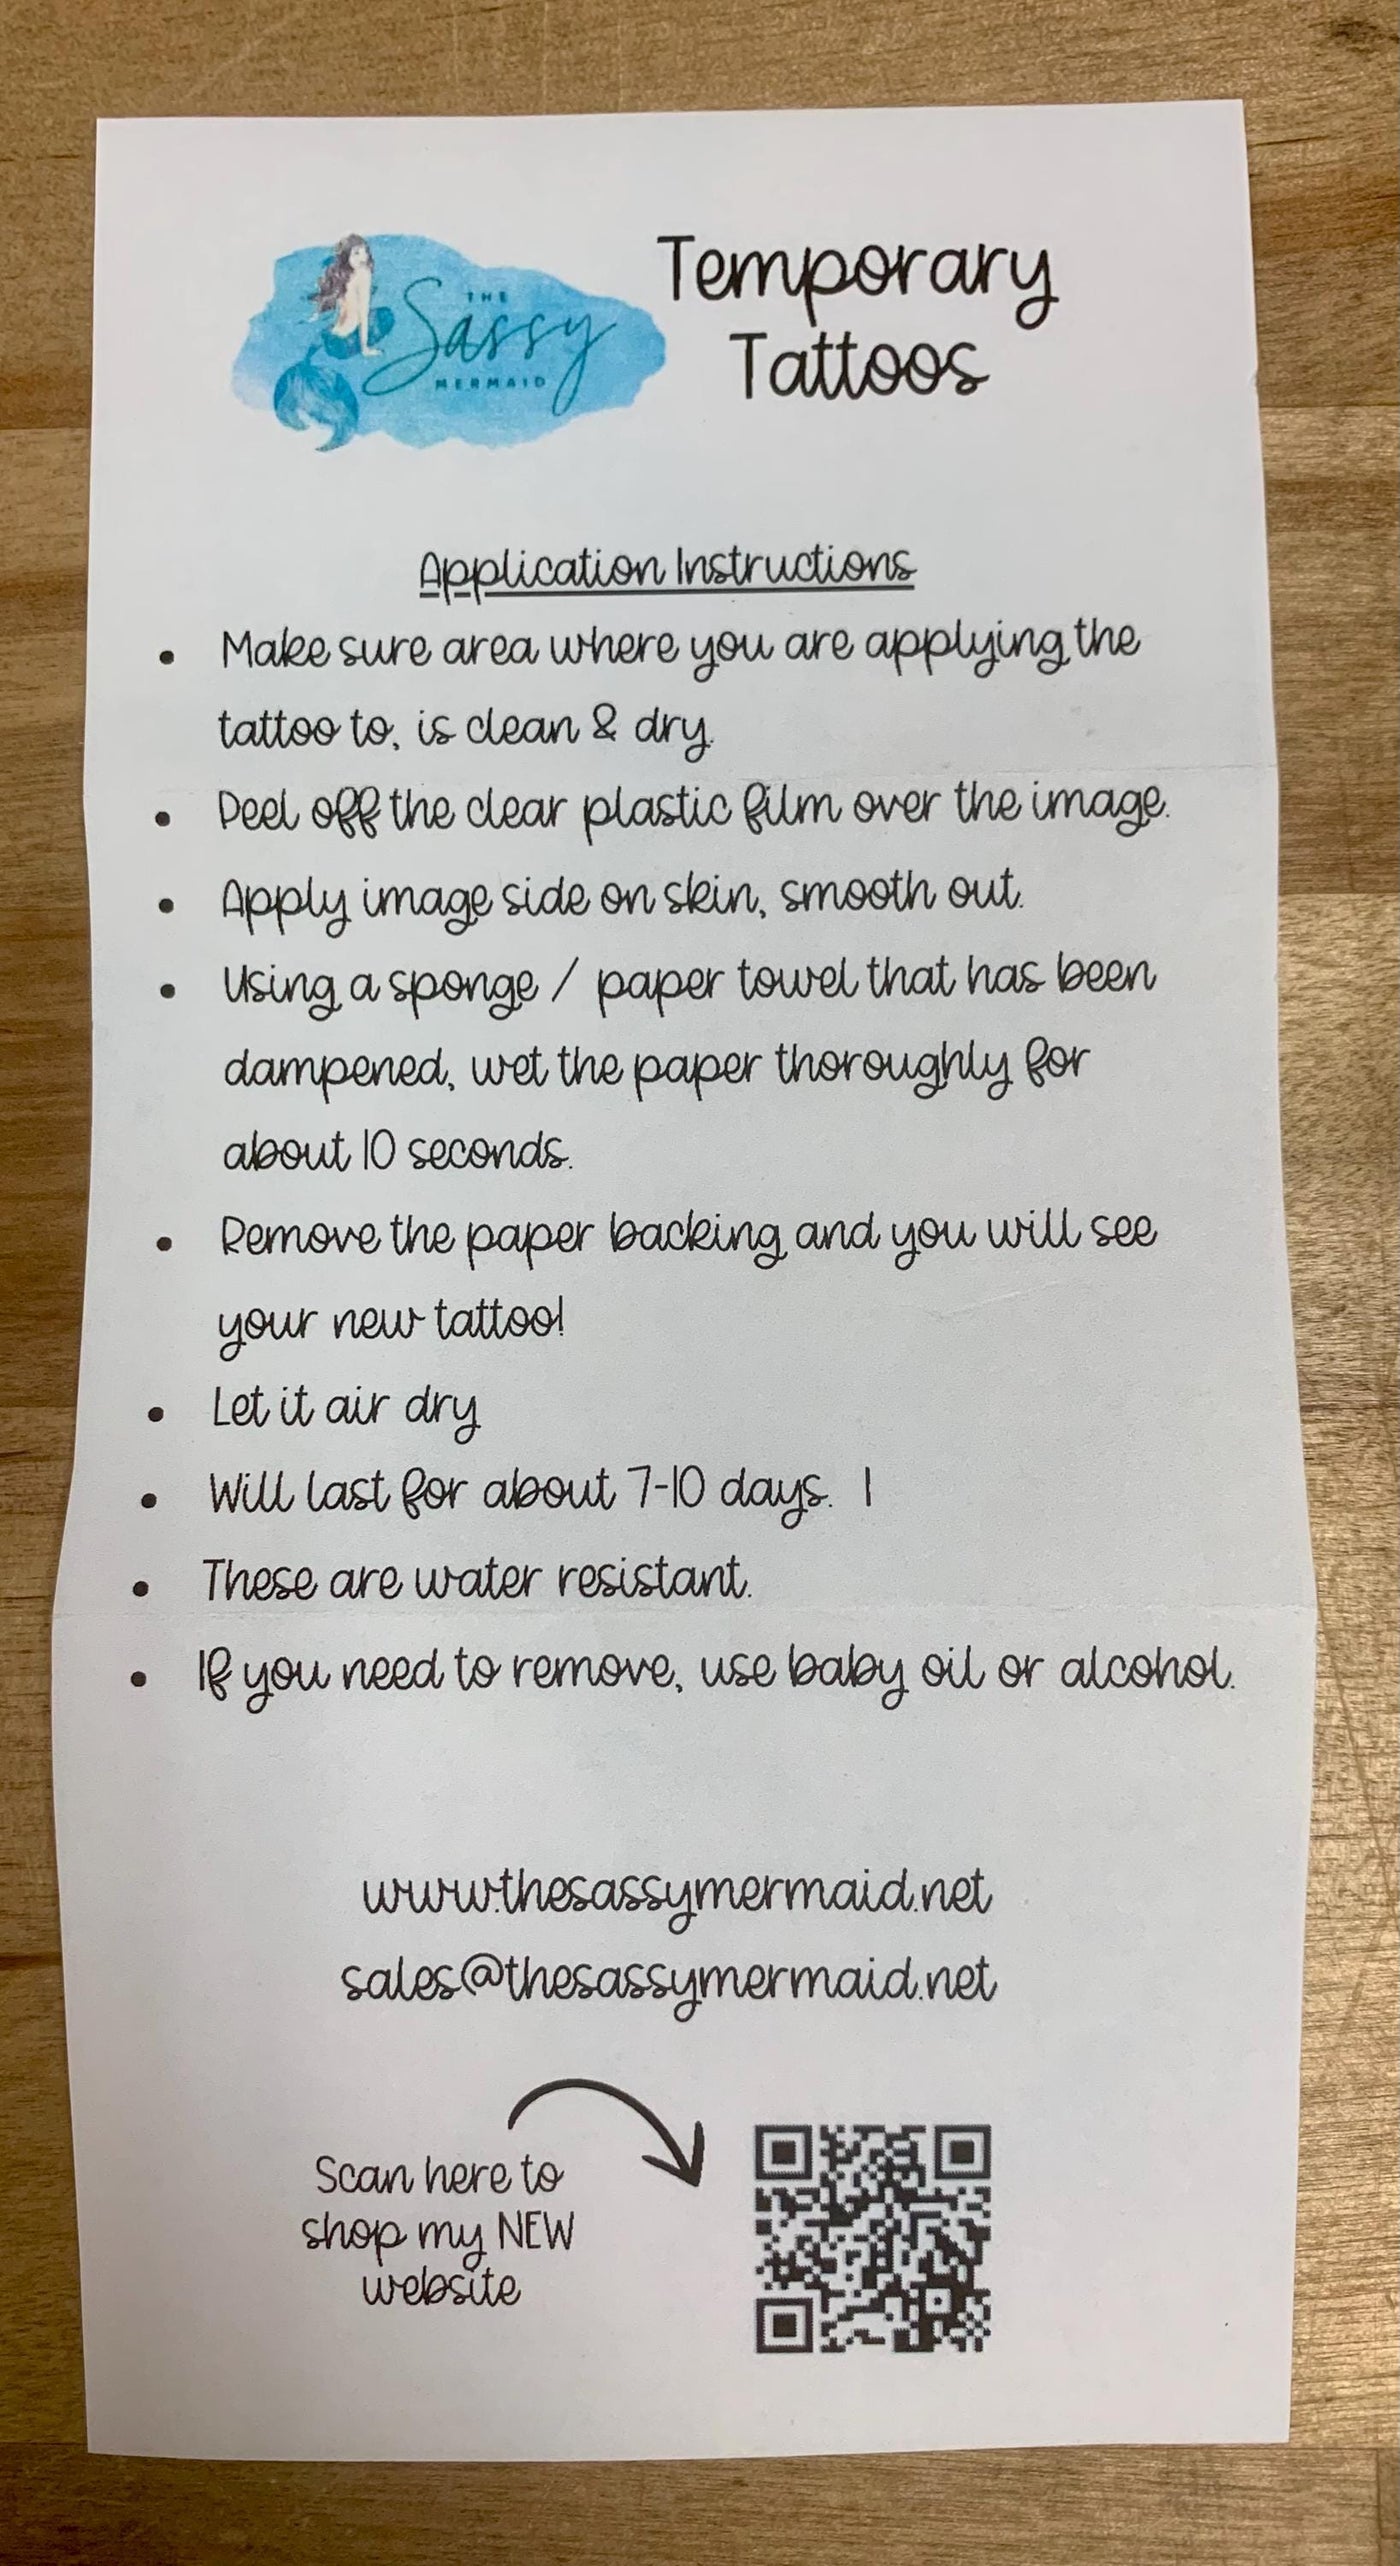 THE
Sassy
MERMAID
Temporary
Tattoos
Application Instructions
• Make sure area where you are applying the
tattoo to, is clean & dry.
• Peel off the clear plastic film over the image.
• Apply image side on skin, smooth out.
• Using a sponge / paper towel that has been
dampened, wet the paper thoroughly for
about 10 seconds.
• Remove the paper backing and you will see
your new tattoo!
• Let it air dry
• Will last for about 7-10 days. I
• These are water resistant.
• If you need to remove, use baby oil or alcohol.
www.thesassymermaid.net
sales@thesassymermaid.net
Scan here to
shop my NEW
website